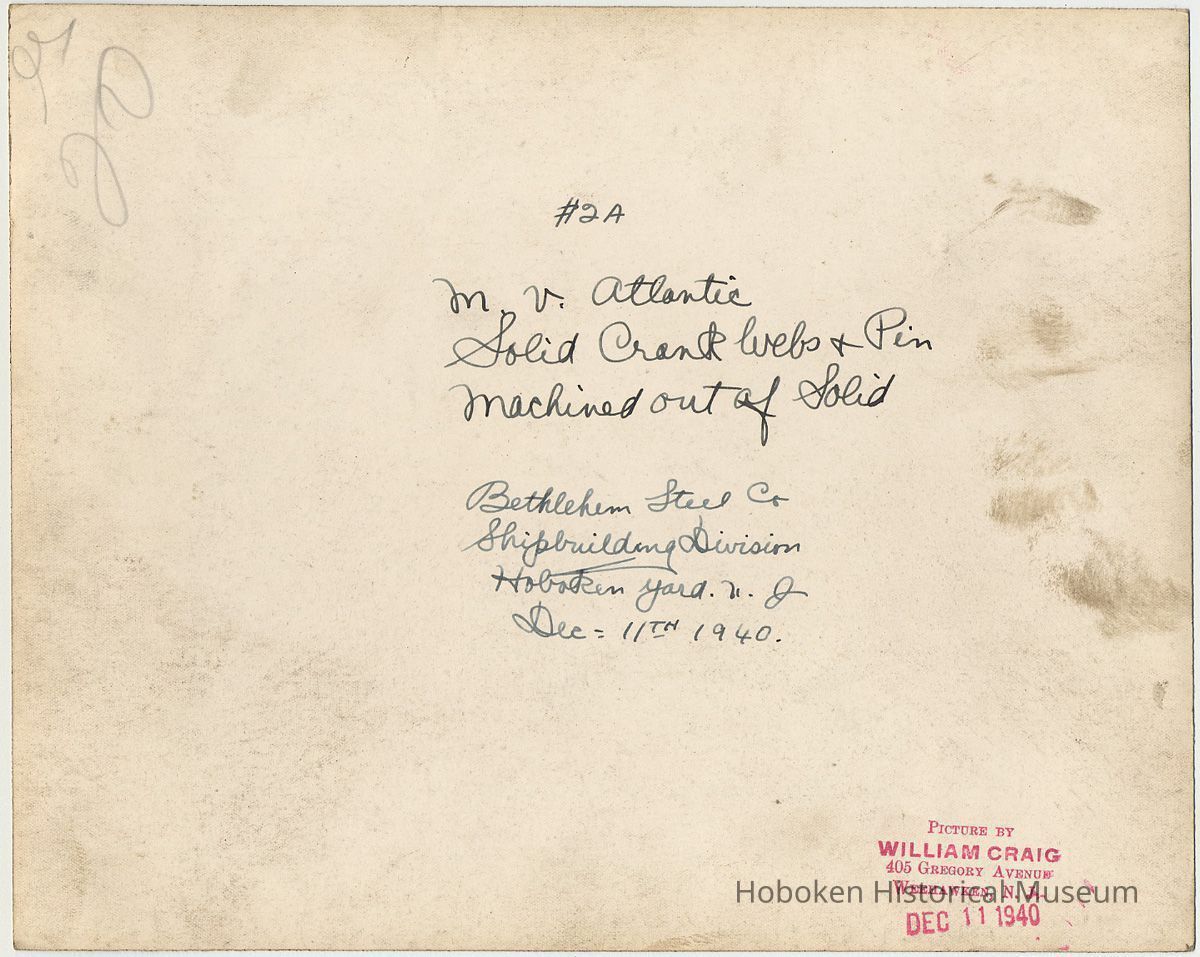 #2A
M. V. Atlantic
Solid Crank Webs & Pin
Machined out of Solid
Bethlehem Steel Co
Shipbuilding Division
Hoboken Yard. N. J
Dec = 11TH 1940.
PICTURE BY
WILLIAM CRAIG
405 GREGORY AVENUE
WEEHAWKEN, N. J.
Hoboken Historical Museum
DEC 11 1940